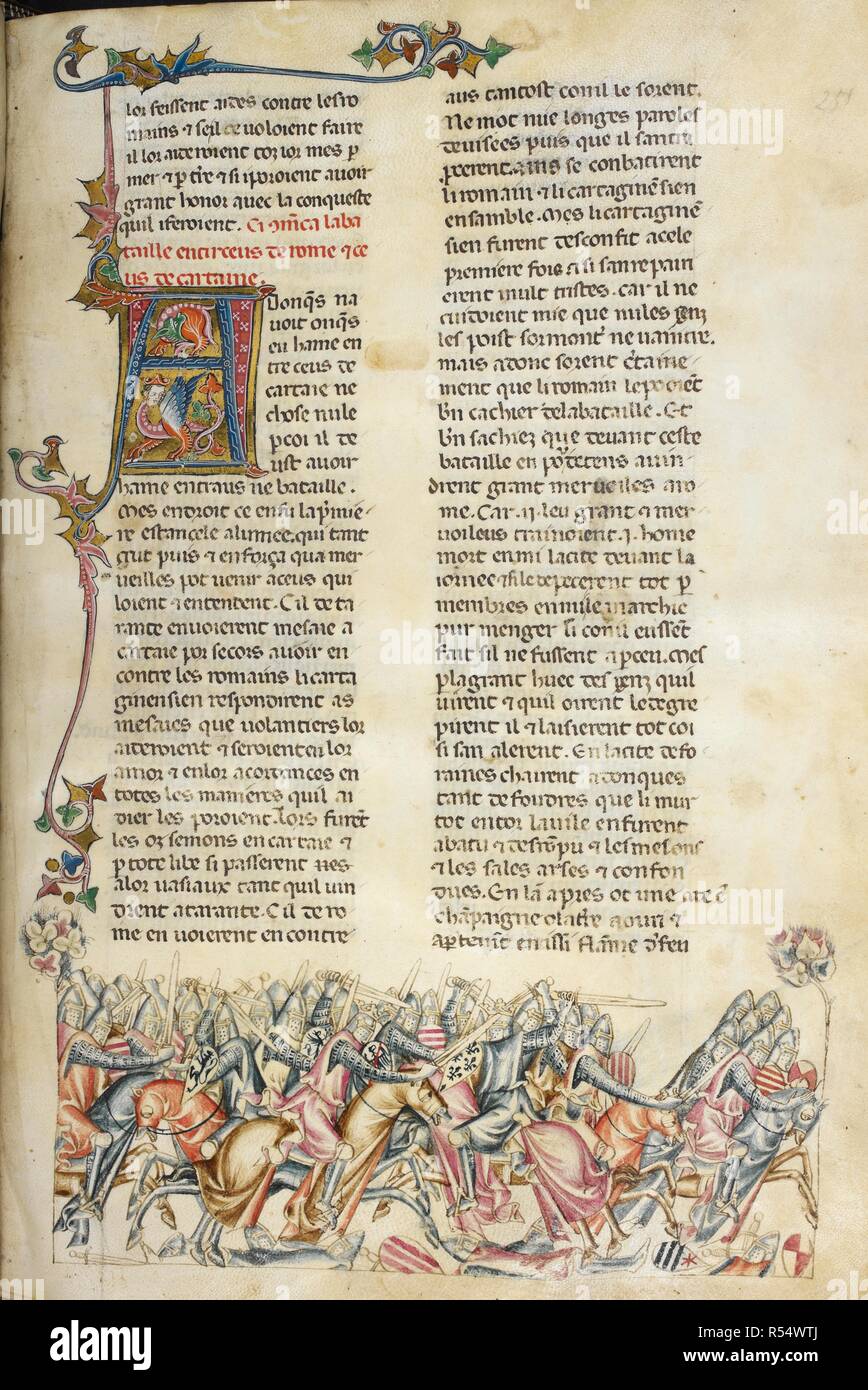 lor feissent aides contre les ro
mains ⁊ seil ce uoloient faire
il lor aideroient toz ior mes p
mer ⁊ p t're ⁊ si iporoient auoir
grant honor auec la conqueste
quil iferoient. Ci 9m̄ca laba
taille entirceus de rome ⁊ ce
us de cartaine.
Adonq̄s na
uoit onq̄s
eu hame en
tre ceus de
cartaie ne
chose nule
pcoi il de
ust auoir
hame entraus ne bataille.
Mes endroit ce en fu la p'mie
re estancele alumee. qui tant
crut puis ⁊ enforça qua mer
ueilles pot uenir aceus qui
loient ⁊ entendent. Cil de ta
rante enuoierent mesaie a
cartaie por secors auoir en
contre les romains li carta
ginensien respondirent as
mesaies que uolantiers lor
aideroient ⁊ seroient en lor
amor ⁊ en lor acordances en
totes les manieres quil ai
dier les poroient. Lors furēt
les oz semons en cartaie ⁊
p tote libe si passerent nes
alor uasiaux tant quil uin
drent atarante. Cil de ro
me en uoierent en contre
aus tantost com il le sorent.
Ne mot nue longes paroles
deuisees puis que il santra
pcerent. ains se conbatirent
li romain ⁊ li cartaginēsien
ensamble. Mes li cartaginē
sien furent desconfit acele
premiere fois si sanrepair
erent mult tristes. car il ne
cuidoient mie que nules genz
les poist sormont' ne uaincre.
mais adonc sorent c'taine
ment que li romain le poroiēt
b'n cachier de la bataille. Et
b'n sachiez que deuant ceste
bataille en po de tens auin
drent grant merueilles a ro
me. Car .ij. leu grant ⁊ mer
uoileus trainoient .j. home
mort en mi la cite deuant la
iornee ⁊ file depecerent tot p
membres en mile marchie
pur menger si com il eussēt
fait sil ne fussent apceu. Mes
p la grant huee des genz quil
uirent ⁊ quil oirent le degre
pirent il ⁊ laisierent tot coi
si san alerent. En la cite de fo
raines chairent adonques
tant de foudres que li mur
tot entor la uile en furent
abatu ⁊ desrōpu ⁊ les mesons
⁊ les sales arses ⁊ confon
dues. En lā apres ot une are ē
chāpaigne ola t're aouri ⁊
aparteuint en issi flāme de feu
251
alamy
Image ID: R54WTJ
www.alamy.com